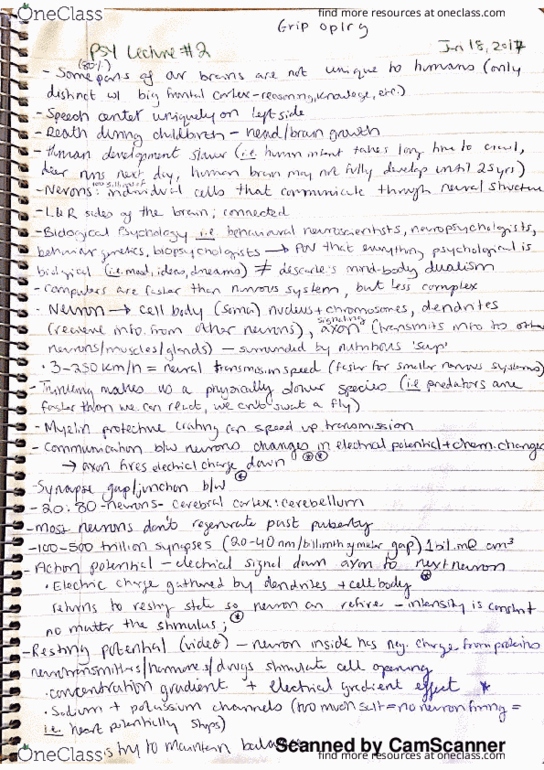 OneClass
find more resources at oneclass.com
PSY Lecture #2
Jan 18, 2017
(80%)
- Some parts of our brains are not unique to humans (only
distinct w/ big frontal cortex - reasoning, knowledge, etc.)
- Speech center uniquely on left side
- Death during childbirth - head/brain growth
- Human development slower (i.e. human infant takes long time to crawl,
deer runs next day, human brain may not fully develop until 25 yrs)
- Nerons: individual cells that communicate through neural structure
- L&R sides of the brain; connected
- Biological Psychology i.e. behavioural neuroscientists, neuropsychologists,
behavior genetics, biopsychologists → POV that everything psychological is
biological (i.e. mood, ideas, dreams) ≠ descarte's mind-body dualism
- computers are faster than nervous system, but less complex
• Neuron → cell body (soma) nucleus + chromosomes, dendrites
(receive info. from other neurons), axon (transmits info to other
neurons/muscles/glands) - surrounded by nutritious 'soup'
• 3-250 km/h = neural transmission speed (faster for smaller nervous systems)
- Thinking makes us a physically slower species (i.e predators are
faster than we can react, we can't swat a fly)
- Myelin protective coating can speed up transmission
- Communication b/w neurons changes in electrical potential + chem. changes
→ axon fires electrical charge down
- Synapse gap/junction b/w
- 20:80 - neurons - cerebral cortex: cerebellum
- most neurons don't regenerate past puberty
- 100-500 trillion synapses (20-40 nm/billionth meter gap) 1 bil. cm³
- Action potential - electrical signal down axon to next neuron
• Electric charge gathered by dendrites + cell body
returns to resting state so neuron can refire - intensity is constant
no matter the stimulus;
- Resting potential (video) - neuron inside has neg. charge from proteins
neurotransmitters/hormones/drugs stimulate cell opening
• concentration gradient + electrical gradient effect *
• Sodium + potassium channels (too much salt = no neuron firing =
i.e. heart potentially stops)
OneClass
try to maintain
Scanned by CamScanner
find more resources at oneclass.com